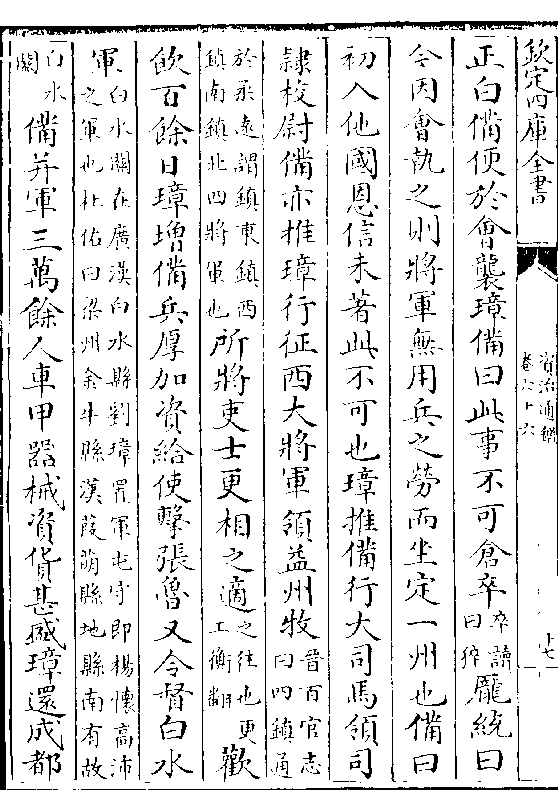 欽定四庫全書
資治通鑑
卷六十六
十七
正白備便於會襲璋備曰此事不可倉卒卒讀曰猝龐統曰
今因會執之則將軍無用兵之勞而坐定一州也備曰
初入他國恩信未著此不可也璋推備行大司馬領司
隸校尉備亦推璋行征西大將軍領益州牧晉百官志曰四鎮通
於柔遠謂鎮東鎮西鎮南鎮北四將軍也所將吏士更相之適之往也更工衡翻歡
飲百餘日璋增備兵厚加資給使擊張魯又令督白水
軍白水關在廣漢白水縣劉璋置軍屯守即楊懷高沛之軍也杜佑曰梁州金牛縣漢葭萌縣地縣南有故
白水關備并軍三萬餘人車甲器械資貨甚盛璋還成都